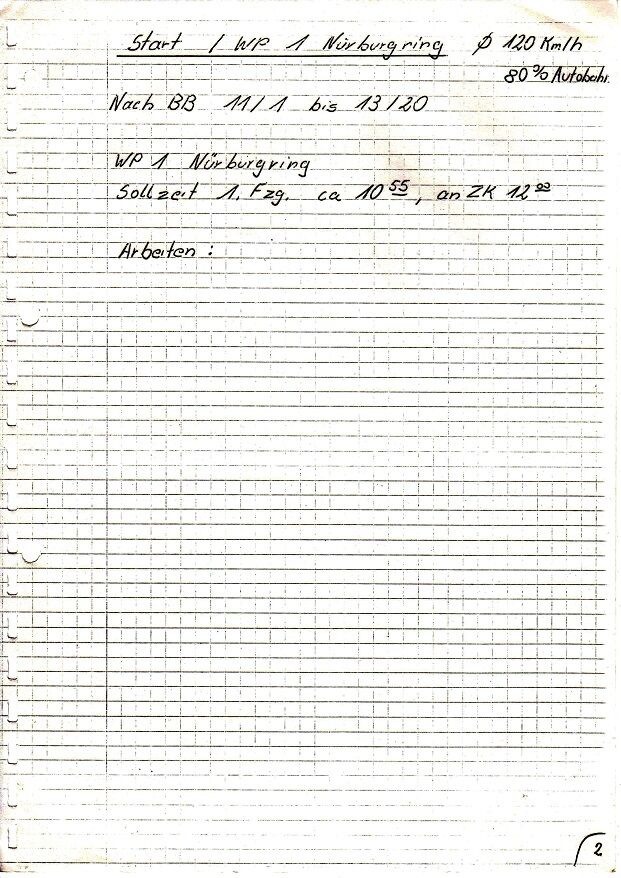 Start / WP 1 Nürburgring ∅ 120 Km/h
80% Autobahn
Nach BB 11/1 bis 13/20
WP 1 Nürburgring
Sollzeit 1. Fzg. ca 10 55, an ZK 12 00
Arbeiten :
2